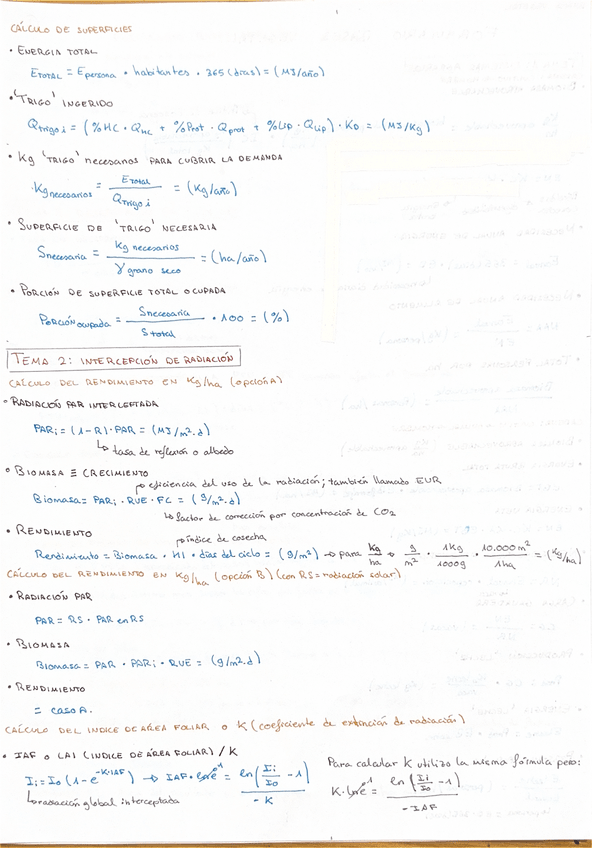 CÁLCULO DE SUPERFICIES
• ENERGIA TOTAL
ETOTAL = Epersona • habitantes • 365 (días) = (MJ/año)
• 'TRIGO' INGERIDO
Qtrigo i = (%HC • QHC + %Prot • Qprot + %Lip • QLip) • KD = (MJ/Kg)
• Kg 'TRIGO' necesarios PARA CUBRIR LA DEMANDA
• Kg necesarios = ETOTAL / QTrigo i = (Kg/año)
• SUPERFICIE DE 'TRIGO' NECESARIA
Snecesaria = Kg necesarios / Y grano seco = (ha/año)
• PORCIÓN DE SUPERFICIE TOTAL OCUPADA
PORCIÓN ocupada = Snecesaria / Stotal • 100 = (%)
TEMA 2: INTERCEPCIÓN DE RADIACIÓN
CÁLCULO DEL RENDIMIENTO EN Kg/ha (OPCIÓN A)
• RADIACIÓN PAR INTERCEPTADA
PARi = (1-R) • PAR = (MJ/m². d)
↳ tasa de reflexión o albedo
• BIOMASA ≡ CRECIMIENTO
↱ eficiencia del uso de la radiación; también llamado EUR
Biomasa = PARi • RUE • FC = (g/m². d)
↳ factor de corrección por concentración de CO2
• RENDIMIENTO
↱ índice de cosecha
Rendimiento = Biomasa • HI • días del ciclo = (g/m²) → para Kg/ha → g/m² • 1Kg/1000g • 10.000 m²/1ha = (Kg/ha)
CÁLCULO DEL RENDIMIENTO EN Kg/ha (opción B) (con RS = radiación solar)
• RADIACIÓN PAR
PAR = RS • PAR en RS
• BIOMASA
BIOMASA = PAR • PARi • RUE = (g/m². d)
• RENDIMIENTO
= CASO A.
CÁLCULO DEL INDICE DE AREA FOLIAR O K (coeficiente de extinción de radiación)
• IAF O LAI (INDICE DE ÁREA FOLIAR) / K
Ii = Io (1 - e^-K•IAF) → IAF • = ln(Ii/Io - 1) / -K
↳ radiación global interceptada
Para calcular K utilizo la misma fórmula pero:
K • = ln(Ii/Io - 1) / -IAF